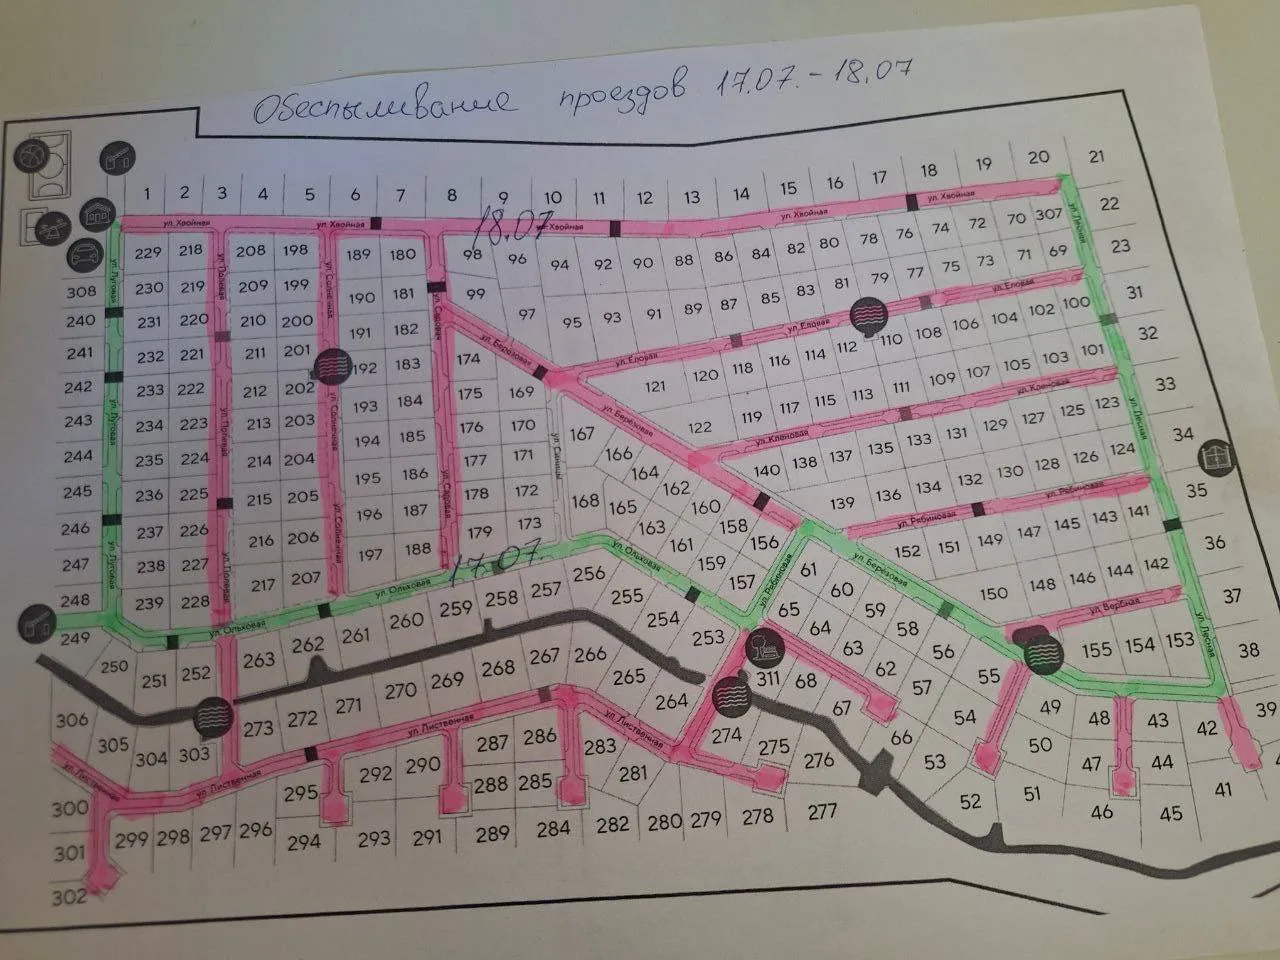 Обеспыливание проездов 17.07. - 18.07
1 2 3 4 5 6 7 8 9 10 11 12 13 14 15 16 17 18 19 20 21
ул. Хвойная ул. Хвойная 18.07 Хвойная ул. Хвойная ул. Хвойная
229 218 208 198 189 180 98 96 94 92 90 88 86 84 82 80 78 76 74 72 70 307 22
308 230 219 209 199 190 181 99 97 95 93 91 89 87 85 83 81 79 77 75 73 71 69 23
240 231 220 210 200 191 182
241 232 221 211 201 192 183 174
242 233 222 212 202 193 184 175 169
243 234 223 213 203 194 185 176 170
244 235 224 214 204 195 186 177 171
245 236 225 215 205 196 187 178 172
246 237 226 216 206 197 188 179 173
247 238 227 217 207
248 239 228
249 250 251 252
ул. Луговая
ул. Луговая
ул. Луговая
ул. Полевая
ул. Полевая
ул. Полевая
ул. Солнечная
ул. Солнечная
ул. Солнечная
ул. Садовая
ул. Садовая
ул. Синицы
ул. Берёзовая
ул. Берёзовая
ул. Берёзовая
ул. Еловая ул. Еловая ул. Еловая
121 120 118 116 114 112 110 108 106 104 102 100 31
122 119 117 115 113 111 109 107 105 103 101 32
ул. Кленовая ул. Кленовая
140 138 137 135 133 131 129 127 125 123 33
139 136 134 132 130 128 126 124 34
ул. Рябиновая ул. Рябиновая
152 151 149 147 145 143 141 35
150 148 146 144 142 36
ул. Вербная
155 154 153 37
38
39
ул. Лесная
ул. Лесная
ул. Лесная
167 166 164 162 160 158 156
168 165 163 161 159 157
17.07.
ул. Ольховая ул. Ольховая ул. Ольховая
ул. Рябиновая
263 262 261 260 259 258 257 256 255 254 253
61 60 59 58 56 55
65 64 63 62 57 54
311 68 67 66 53 52
49 48 43 42
50 47 44 41
51 46 45
273 272 271 270 269 268 267 266 265 264
306 305 304 303
ул. Лиственная ул. Лиственная ул. Лиственная ул. Лиственная
274 275 276 277
300 299 298 297 296 295 294
292 290 287 286 283 281
293 291 288 285
289 284 282 280 279 278
301
302